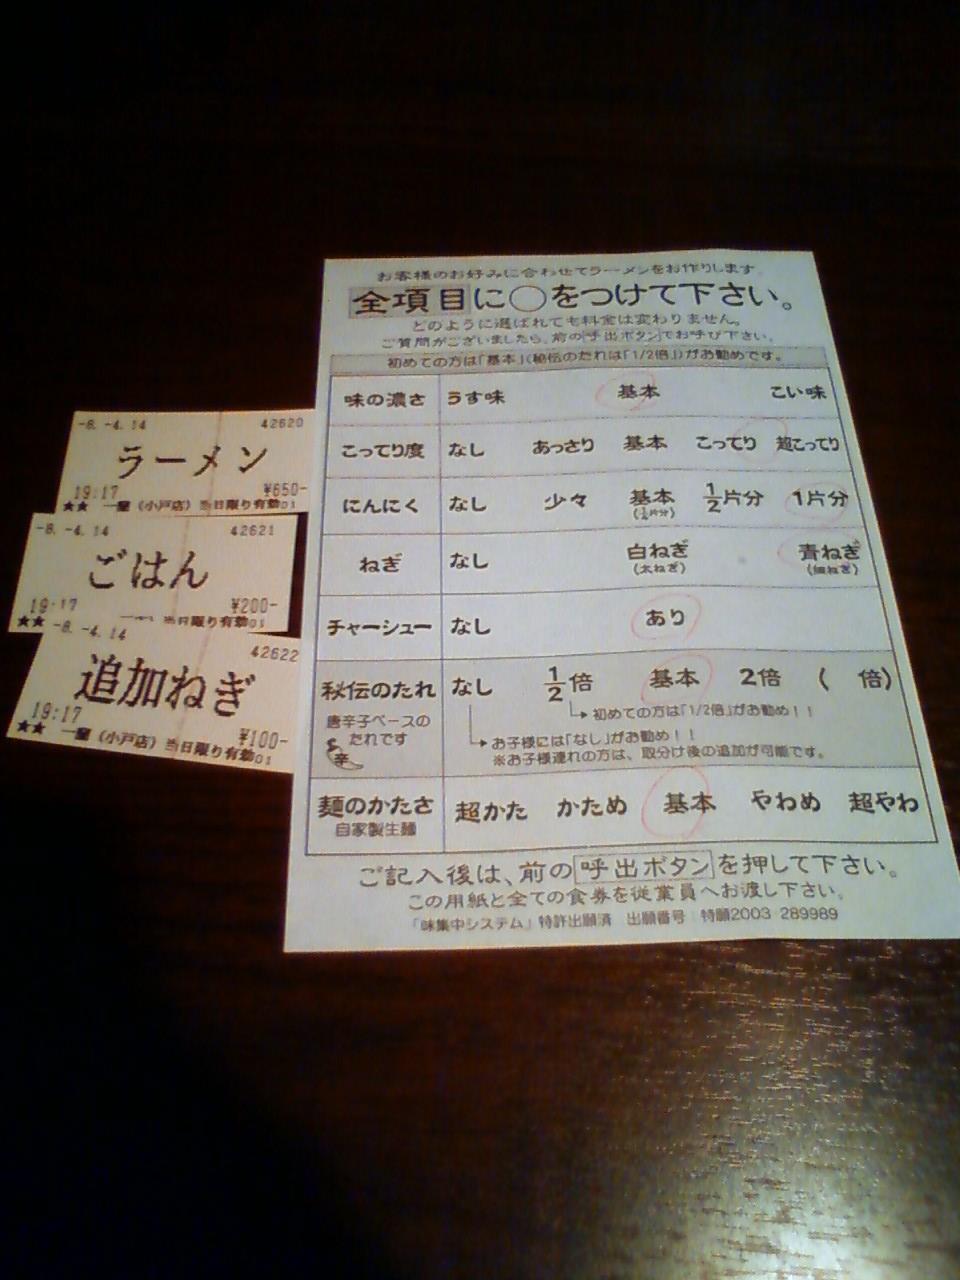 -8.-4.14 42620
ラーメン
19:17 ¥650-
★★ 一蘭(小戸店)当日限り有効01
-8.-4.14 42621
ごはん
19:17 ¥200-
★★ 当日限り有効01
-8.-4.14 42622
追加ねぎ
19:17 ¥100-
★★ 一蘭(小戸店)当日限り有効01
お客様のお好みに合わせてラーメンをお作りします
全項目に○をつけて下さい。
どのように選ばれても料金は変わりません。
ご質問がございましたら、前の呼出ボタンでお呼び下さい。
初めての方は「基本」(秘伝のたれは「1/2倍」)がお勧めです。
味の濃さ うす味 基本 こい味
こってり度 なし あっさり 基本 こってり 超こってり
にんにく なし 少々 基本 1/2片分 1片分
(1/4片分)
ねぎ なし 白ねぎ 青ねぎ
(太ねぎ) (細ねぎ)
チャーシュー なし あり
秘伝のたれ なし 1/2倍 基本 2倍 ( 倍)
唐辛子ベースの
たれです
辛
初めての方は「1/2倍」がお勧め!!
お子様には「なし」がお勧め!!
※お子様連れの方は、取分け後の追加が可能です。
麺のかたさ 超かた かため 基本 やわめ 超やわ
自家製生麺
ご記入後は、前の呼出ボタンを押して下さい。
この用紙と全ての食券を従業員へお渡し下さい。
「味集中システム」特許出願済 出願番号 特願2003-289989